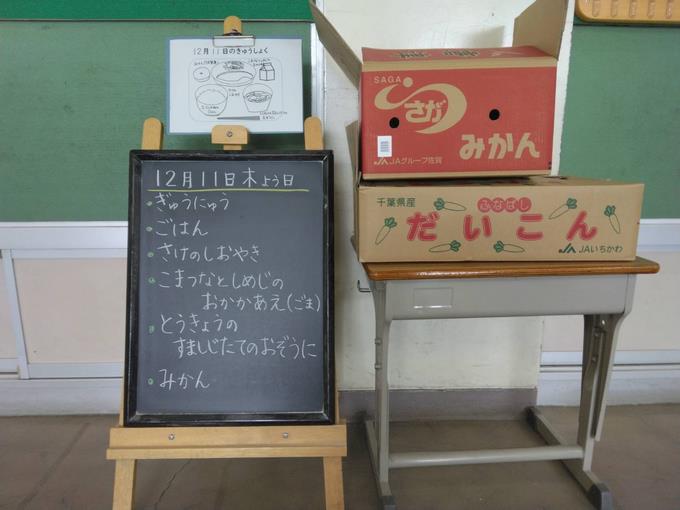 12月11日のきゅうしょく
12月11日木よう日
ぎゅうにゅう
ごはん
さけのしおやき
こまつなとしめじの
おかかあえ(ごま)
とうきょうの
すましじたてのおぞうに
みかん
SAGA
さが
みかん
JAグループ佐賀
千葉県産
ふなばし
だいこん
JAいちかわ